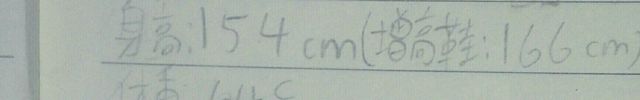 身高:154cm(增高鞋:166cm)